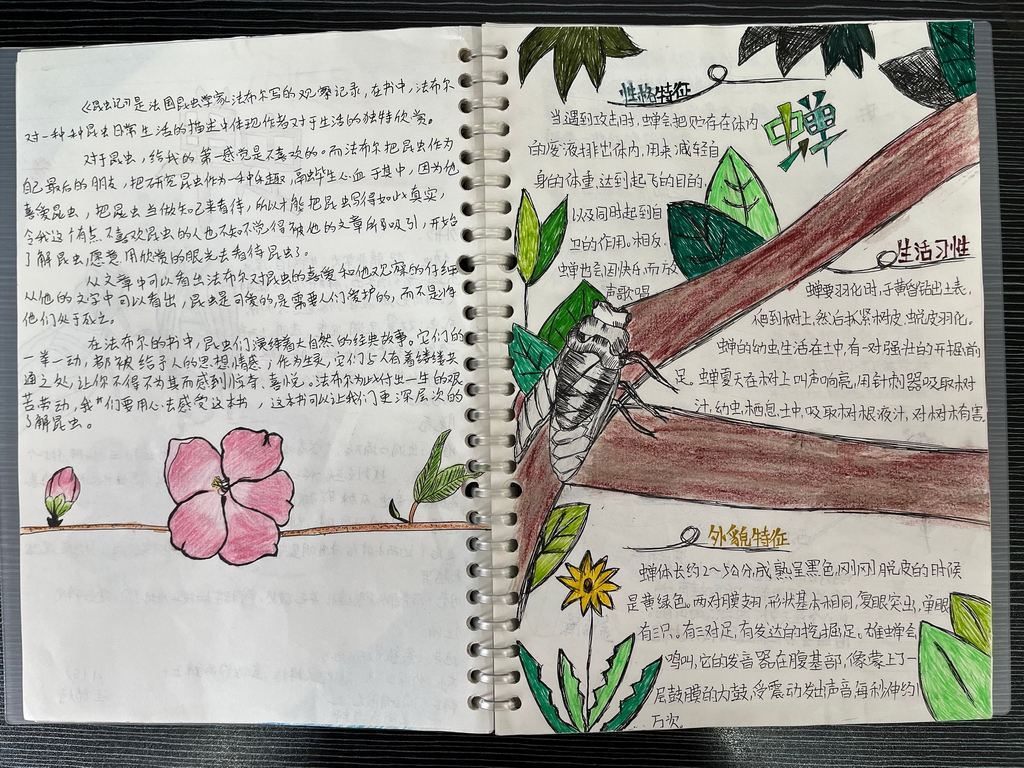 《昆虫记》是法国昆虫学家法布尔写的观察记录，在书中，法布尔
对一种种昆虫日常生活的描述中体现作者对于生活的独特欣赏。
对于昆虫，给我的第一感觉是不喜欢的。而法布尔把昆虫作为
自己最后的朋友，把研究昆虫作为一种乐趣，高毕生心血于其中，因为他
喜爱昆虫，把昆虫当做知己来看待，所以才能把昆虫写得如此真实，
令我这个有点不喜欢昆虫的人也不知不觉得被他的文章所吸引，开始
了解昆虫，愿意用欣赏的眼光去看待昆虫了。
从文章中可以看出法布尔对昆虫的喜爱和他观察的仔细
从他的文字中可以看出，昆虫是可爱的是需要人们爱护的，而不是将
他们处于敌之。
在法布尔的书中，昆虫们演绎着大自然的经典故事。它们的
一举一动，都被给予人的思想情感；作为生灵，它们与人有着缕缕共
通之处，让你不得不为其而感到惊奇、喜悦。法布尔为此付出一生的艰
苦劳动，我们要用心去感受这本书，这本书可以让我们更深层次的
了解昆虫。
性格特征
蝉
当遇到攻击时，蝉会把贮存在体内
的废液排出体内，用来减轻自
身的体重达到起飞的目的，
以及同时起到自
卫的作用。相反，
蝉也会因快乐而放
声歌唱
生活习性
蝉要羽化时，于黄昏钻出土表，
爬到树上，然后抓紧树皮，蜕皮羽化。
蝉的幼虫生活在土中，有一对强壮的开掘前
足。蝉夏天在树上叫声响亮，用针刺器吸取树
汁，幼虫栖息土中，吸取树根液汁，对树木有害
外貌特征
蝉体长约2～5公分，成熟呈黑色，刚刚脱皮的时候
是黄绿色。两对膜翅，形状基本相同，复眼突出，单眼
有三只。有三对足，有发达的挖掘足。雄蝉会
鸣叫，它的发音器在腹基部，像蒙上了一
层鼓膜的大鼓，受震动发出声音，每秒伸约1
万次